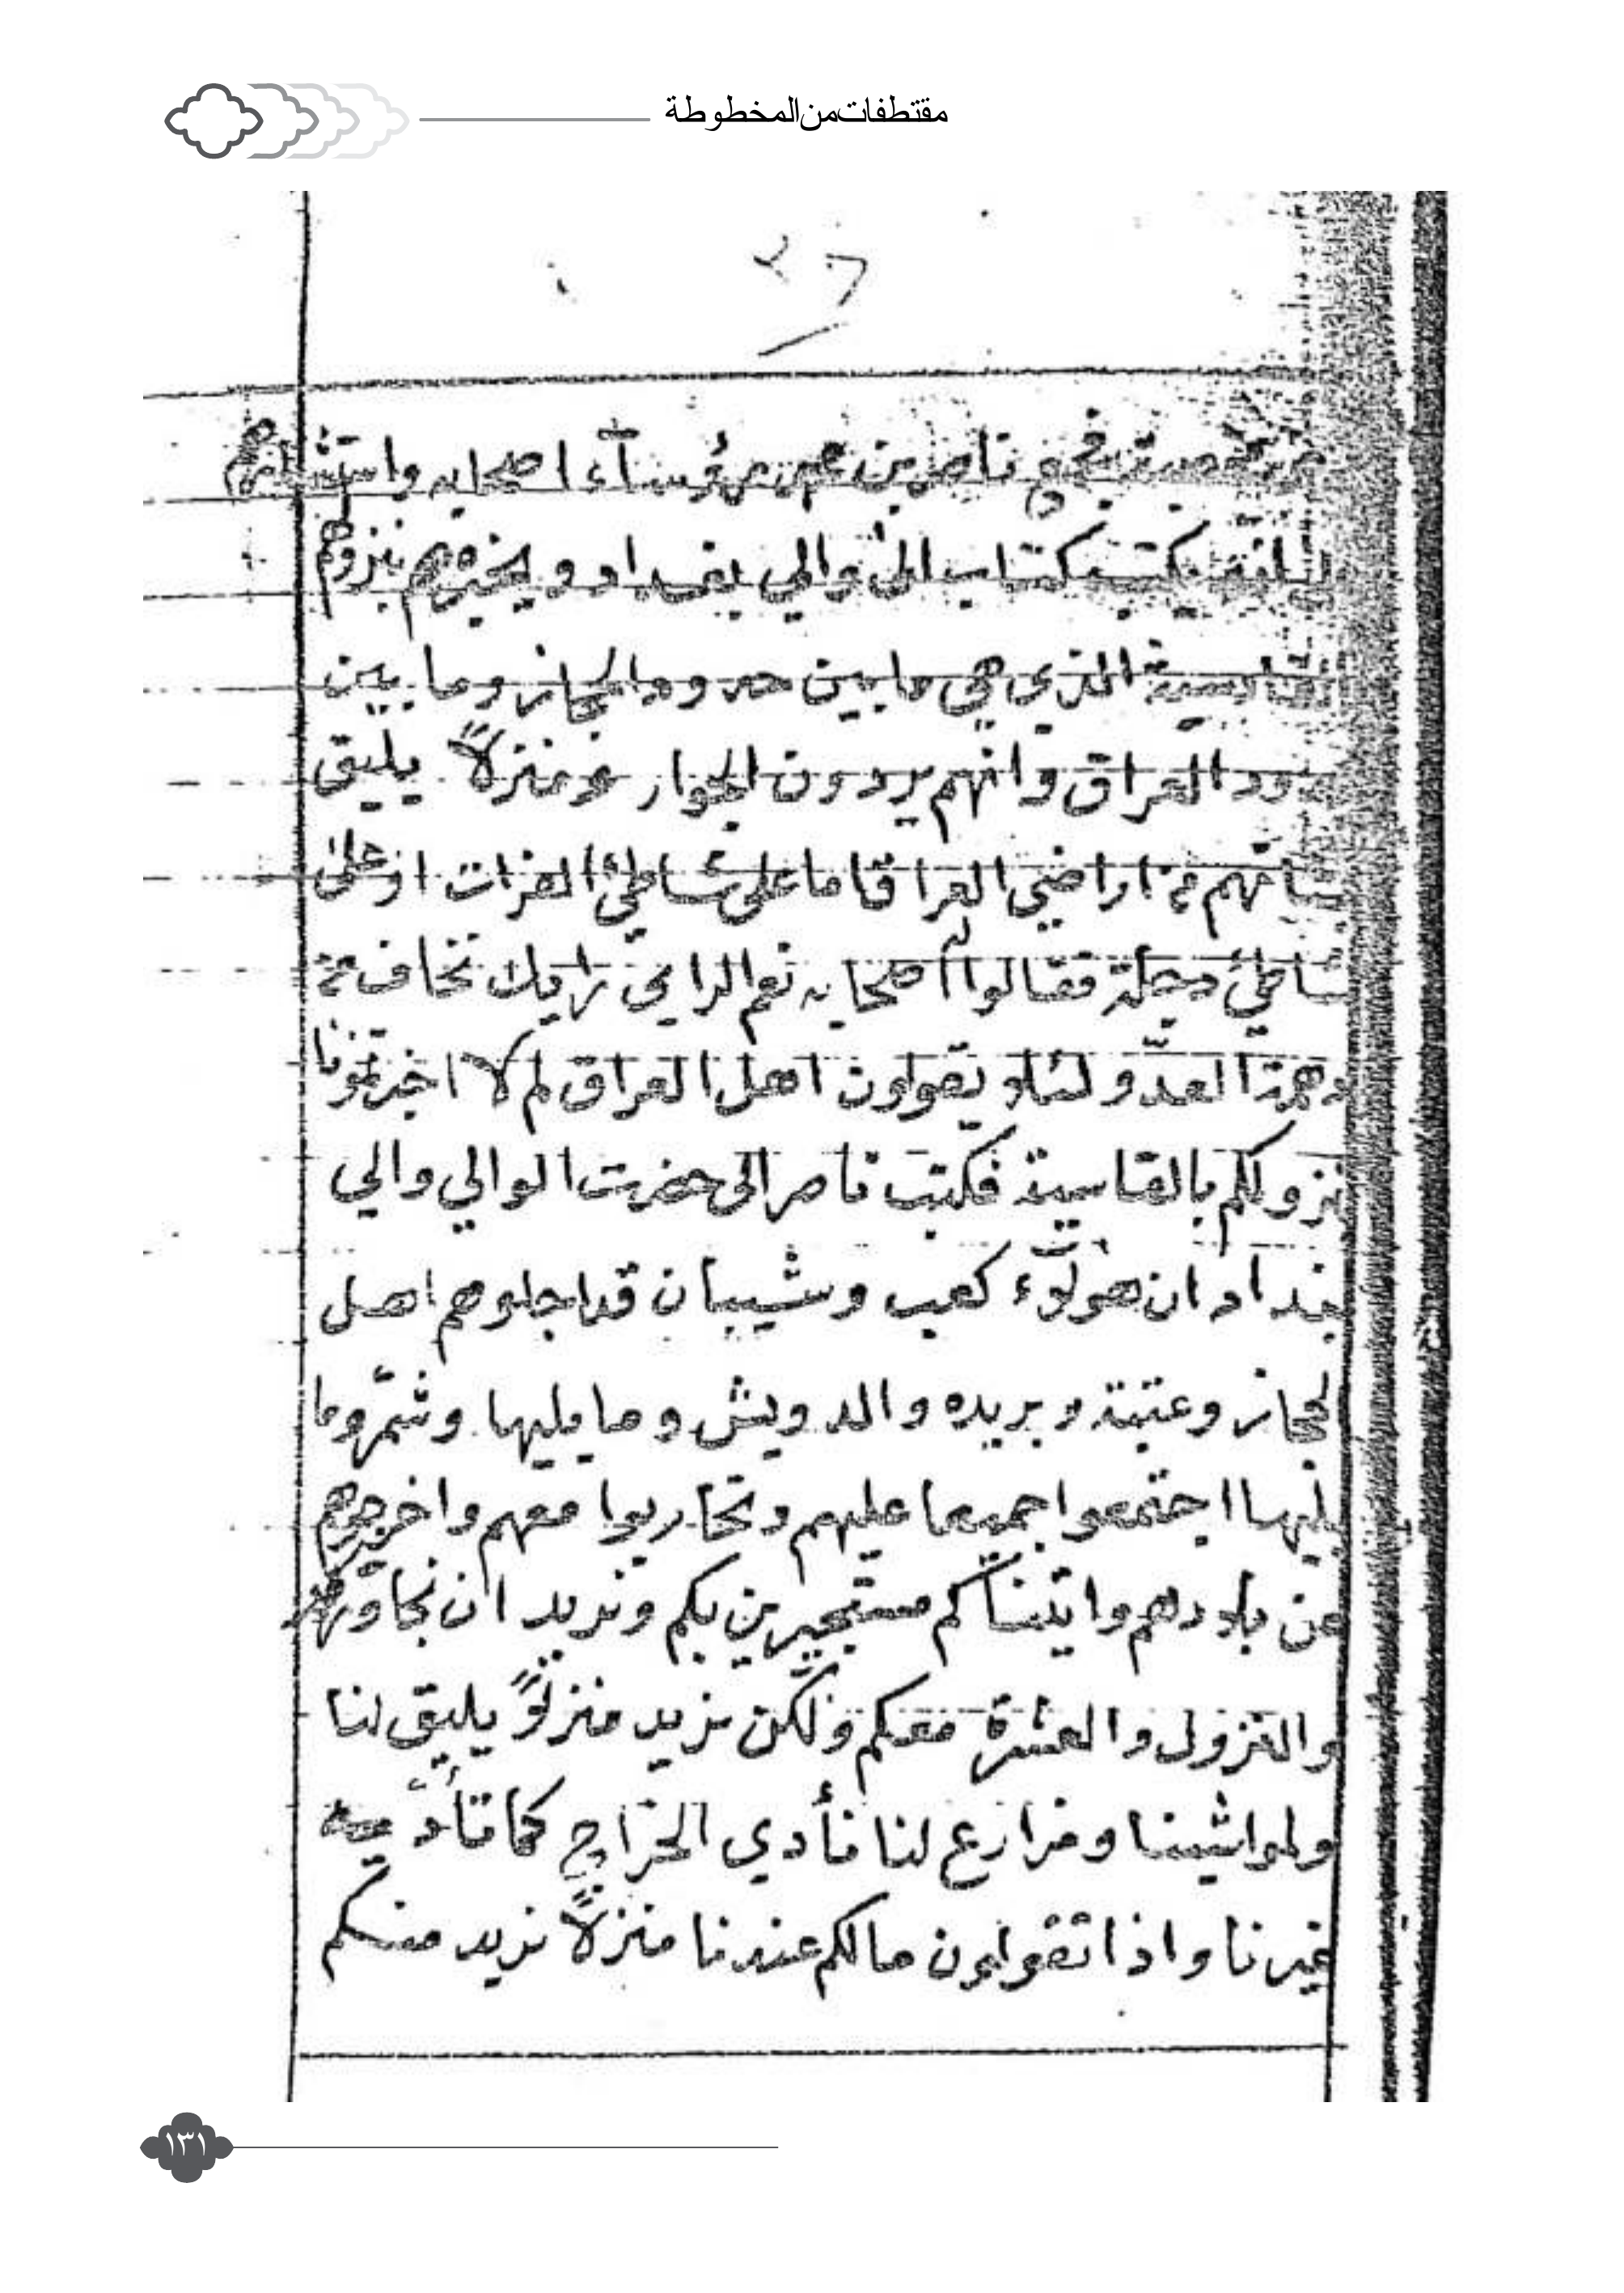 مقتطفات من المخطوطة
٢٦
ناصر بن رؤسآء اصحابه واستشارهم
يكتب كتاب الى والي بغداد و يخبرهم بنزوهم
الذي هي ما بين حدود الحجاز وما بين
العراق وانهم يردون الجوار منزلاً يليق
اراضي العراق اما على شاطئ الفرات او على
شاطئ دجلة فقالوا له اصحابه نعم الراي رايك نخاف
هذا العدو لئلا يقولون اهل العراق لم لا اخبرتمونا
نزولكم بالقاسية فكتب ناصر الى حضرت الوالي والي
بغداد ان هولآء كعب وشيبان قد اجلوهم اهل
لحجاز وعتبة و بريده والدويش وما يليها وشمّر وما
يليها اجتمعوا جميعا عليهم وتحاربوا معهم واخرجوهم
من بلادهم واتيناكم مستجيرين بكم ونريد ان
والنزول والعشرة معكم ولكن نريد منزلاً يليق لنا
ولمواشينا ومزارع لنا نأدي الخراج كما تأديه
غيرنا واذا تقولون مالكم عندنا منزلاً نريد منكم
١٣١